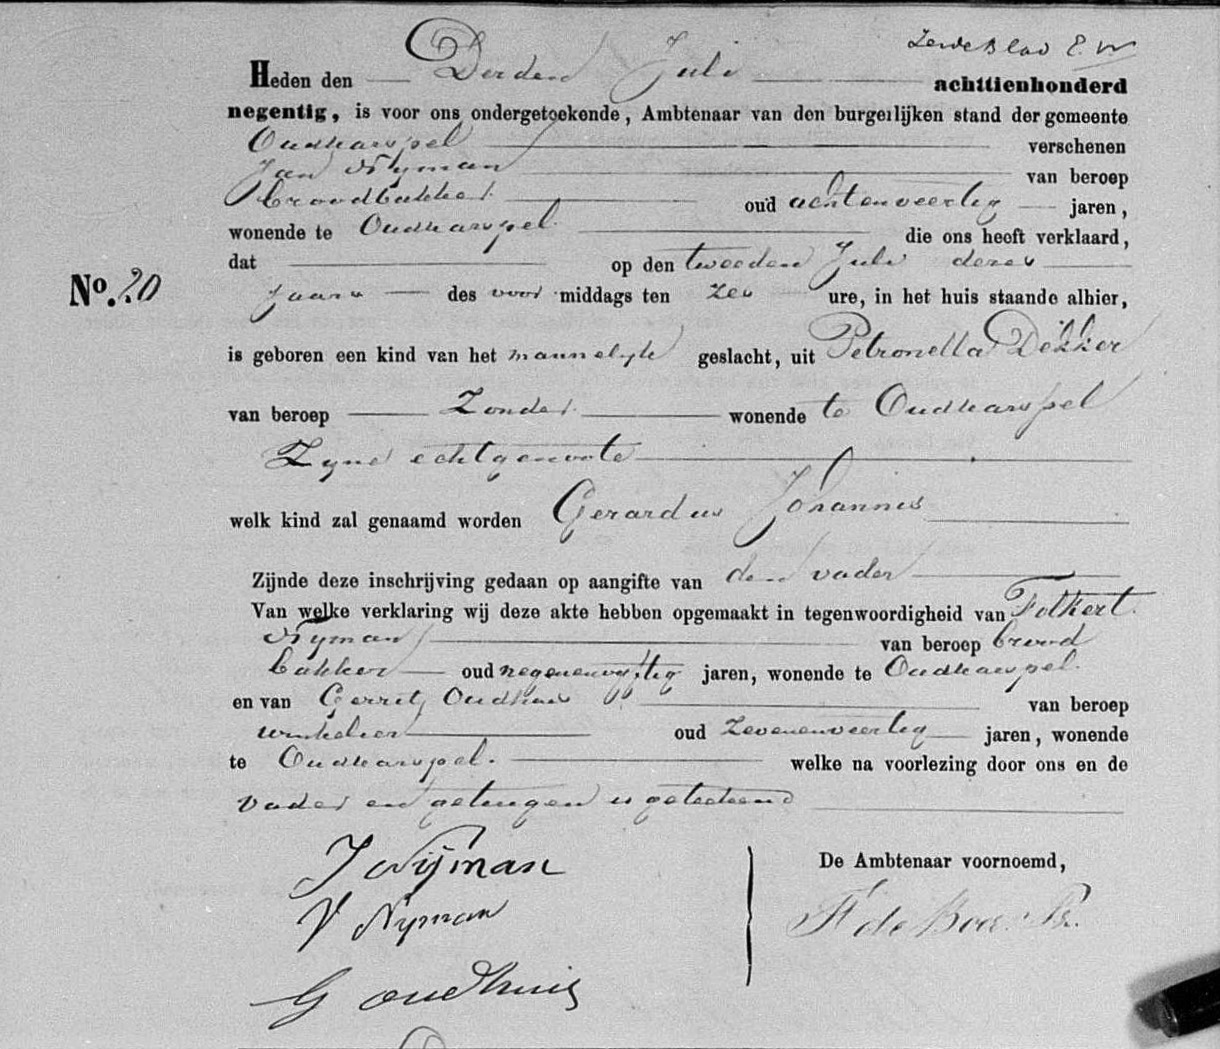 Zesde Blad E. W
Heden den Derden Juli achttienhonderd
negentig, is voor ons ondergeteekende, Ambtenaar van den burgerlijken stand der gemeente
Oudkarspel verschenen
Jan Nyman van beroep
broodbakker oud achtenveertig jaren,
wonende te Oudkarspel die ons heeft verklaard,
dat op den tweeden Juli dezes
No. 20 jaars des voor middags ten zes ure, in het huis staande alhier,
is geboren een kind van het mannelyk geslacht, uit Petronella Dekker
van beroep Zonder wonende te Oudkarspel
Zyne echtgenoote
welk kind zal genaamd worden Gerardus Johannis
Zijnde deze inschrijving gedaan op aangifte van den vader
Van welke verklaring wij deze akte hebben opgemaakt in tegenwoordigheid van Folkert
Nyman van beroep brood
bakker oud negenenvyftig jaren, wonende te Oudkarspel
en van Gerrit Oudhuis van beroep
winkelier oud zevenenveertig jaren, wonende
te Oudkarspel. welke na voorlezing door ons en de
vader en getuigen is geteekend
J Nijman
De Ambtenaar voornoemd,
Nyman
F de Boer
G Oudhuis